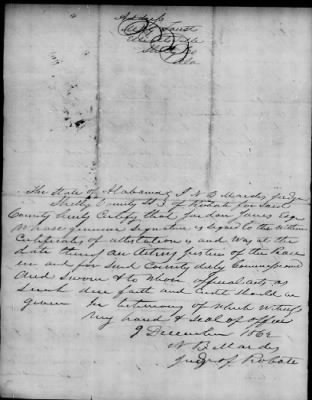 Address
Faust
The State of Alabama, I N B Mardis Judge
Shelby County of Probate for said
County hereby Certify that Jordan Jones Esqr
Whose genuine Signature is signed to the Within
Certificates of attestation is and Was at the
date thereof an Acting Justice of the Peace
in and for Said County duly Commissioned
And Sworn & to Whose official acts as
Such due faith and Credit Should be
given In testimony of Which Witness
my hand & Seal of office
9 December 1862
N B Mardis
Judge of Probate